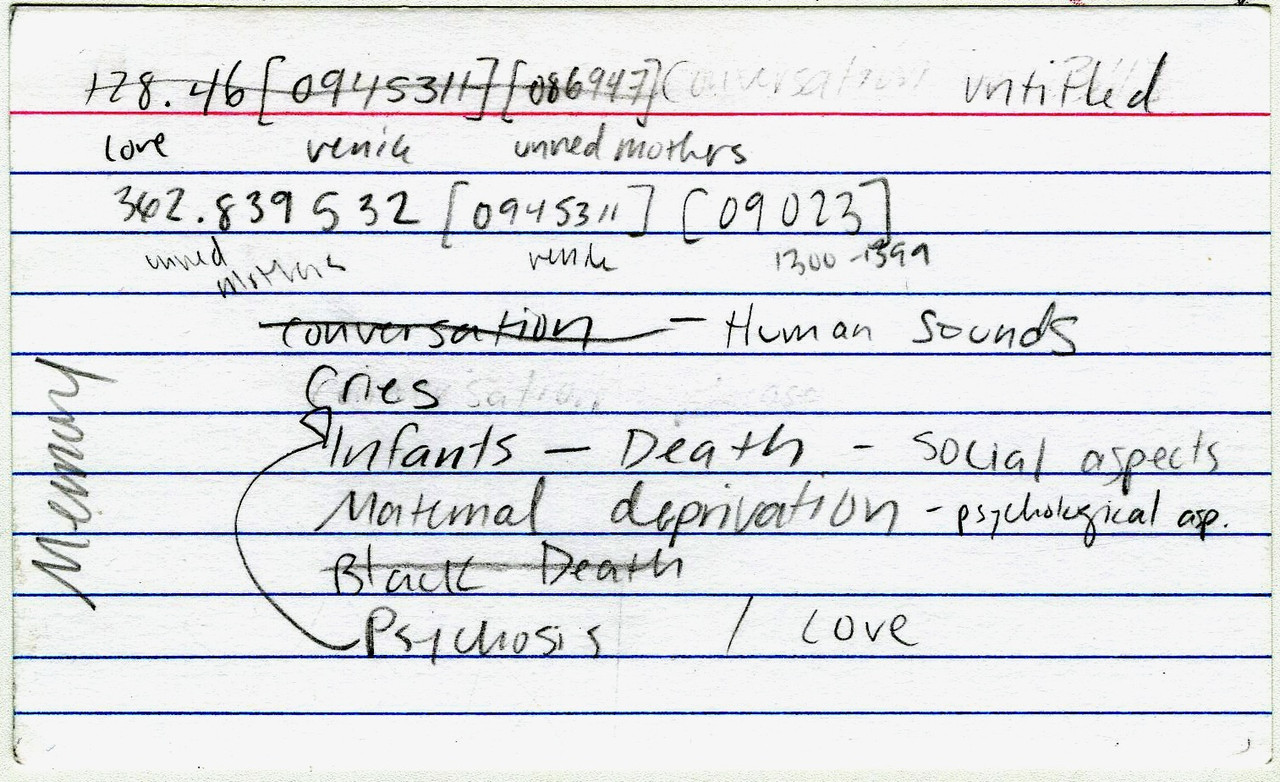 128.46[0945311][086947] Conversation untitled
love venice unwed mothers
362.839532 [0945311] [09023]
unwed mothers venice 1300-1399
conversation - Human Sounds
Cries
Infants - Death - social aspects
Maternal deprivation - psychological asp.
Black Death
Psychosis / Love
Memory